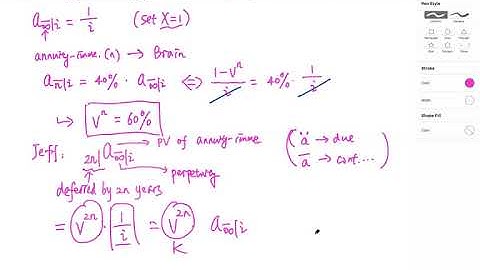 a∞|i = 1/i (set X=1)
annuity-imme. (n) → Brain
an|i = 40% · a∞|i ⇔ 1-vⁿ/i = 40% · 1/i
↳ vⁿ = 60%
→ PV of annuity-imme
Jeff: 2n|a∞|i → perpetuity
(ä → due
ā → cont....)
deferred by 2n years
= v²ⁿ · 1/i = v²ⁿ a∞|i
K
Pen Style
Stroke
Color
Width
Stroke Fill
Color